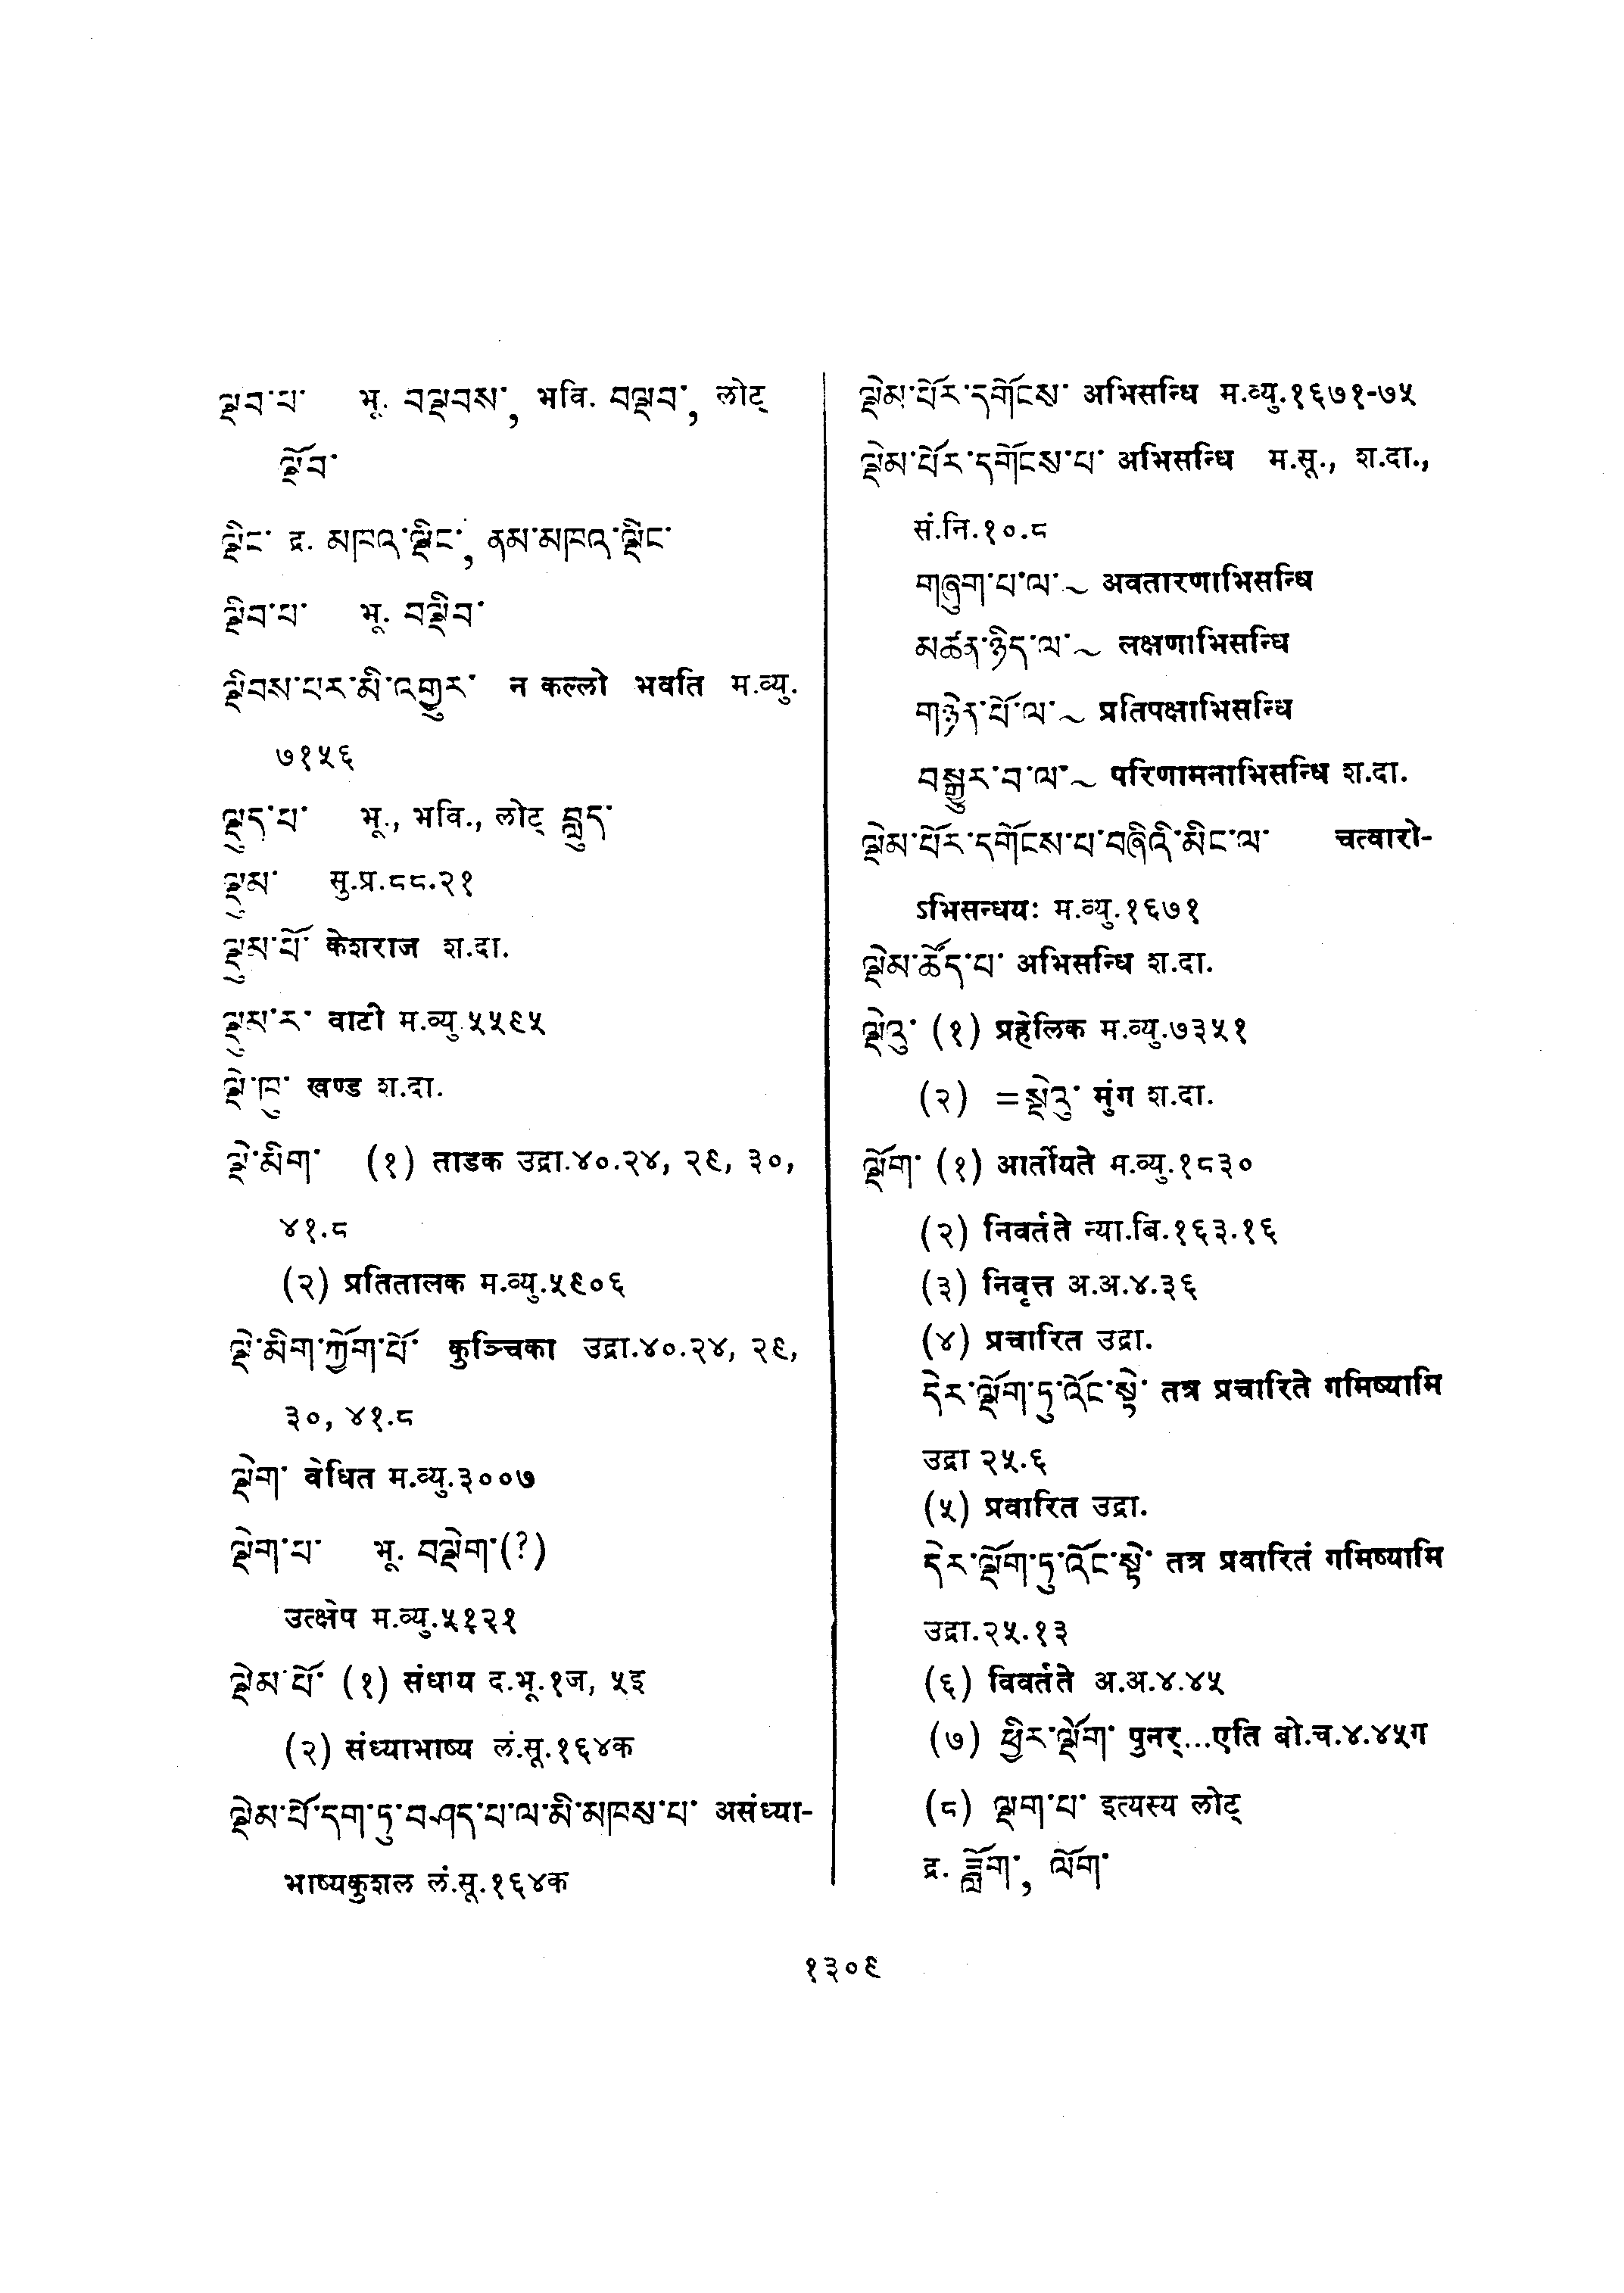 ལྡབ་པ་ भू. བལྡབས་, भवि. བལྡབ་, लोट्
ལྡོབ་
ལྡིང་ द्र. མཁའ་ལྡིང་, ནམ་མཁའ་ལྡིང་
ལྡིབ་པ་ भू. བལྡིབ་
ལྡིབས་པར་མི་འགྱུར་ न कल्लो भवति म.व्यु.
७१५६
ལྡུད་པ་ भू., भवि., लोट् བླུད་
ལྡུམ་ सु.प्र.८८.२१
ལྡུམ་པོ་ केशराज श.दा.
ལྡུམ་ར་ वाटी म.व्यु.५५९५
ལྡེ་ཁུ་ खण्ड श.दा.
ལྡེ་མིག་ (१) ताडक उद्रा.४०.२४, २९, ३०,
४१.८
(२) प्रतितालक म.व्यु.५९०६
ལྡེ་མིག་ཀྱོག་པོ་ कुञ्चिका उद्रा.४०.२४, २९,
३०, ४१.८
ལྡེག་ वेधित म.व्यु.३००७
ལྡེག་པ་ भू. བལྡེག་(?)
उत्क्षेप म.व्यु.५१२१
ལྡེམ་པོ་ (१) संधाय द.भू.१ज, ५इ
(२) संध्याभाष्य लं.सू.१६४क
ལྡེམ་པོ་དག་ཏུ་བཤད་པ་ལ་མི་མཁས་པ་ असंध्या-
भाष्यकुशल लं.सू.१६४क
ལྡེམ་པོར་དགོངས་ अभिसन्धि म.व्यु.१६७१-७५
ལྡེམ་པོར་དགོངས་པ་ अभिसन्धि म.सू., श.दा.,
सं.नि.१०.८
གཞུག་པ་ལ་~ अवतारणाभिसन्धि
མཚན་ཉིད་ལ་~ लक्षणाभिसन्धि
གཉེན་པོ་ལ་~ प्रतिपक्षाभिसन्धि
བསྒྱུར་བ་ལ་~ परिणामनाभिसन्धि श.दा.
ལྡེམ་པོར་དགོངས་པ་བཞིའི་མིང་ལ་ चत्वारो-
ऽभिसन्धयः म.व्यु.१६७१
ལྡེམ་ཚོད་པ་ अभिसन्धि श.दा.
ལྡེའུ་ (१) प्रहेलिक म.व्यु.७३५१
(२) =སྡེའུ་ मुंग श.दा.
ལྡོག་ (१) आर्तीयते म.व्यु.१८३०
(२) निवर्तते न्या.बि.१६३.१६
(३) निवृत्त अ.अ.४.३६
(४) प्रचारित उद्रा.
དེར་ལྡོག་ཏུ་འོང་སྟེ་ तत्र प्रचारिते गमिष्यामि
उद्रा २५.६
(५) प्रवारित उद्रा.
དེར་ལྡོག་ཏུ་འོང་སྟེ་ तत्र प्रवारितं गमिष्यामि
उद्रा.२५.१३
(६) विवर्तते अ.अ.४.४५
(७) ཕྱིར་ལྡོག་ पुनर्...एति बो.च.४.४५ग
(८) ལྡག་པ་ इत्यस्य लोट्
द्र. ཟློག་, ལོག་
१३०९